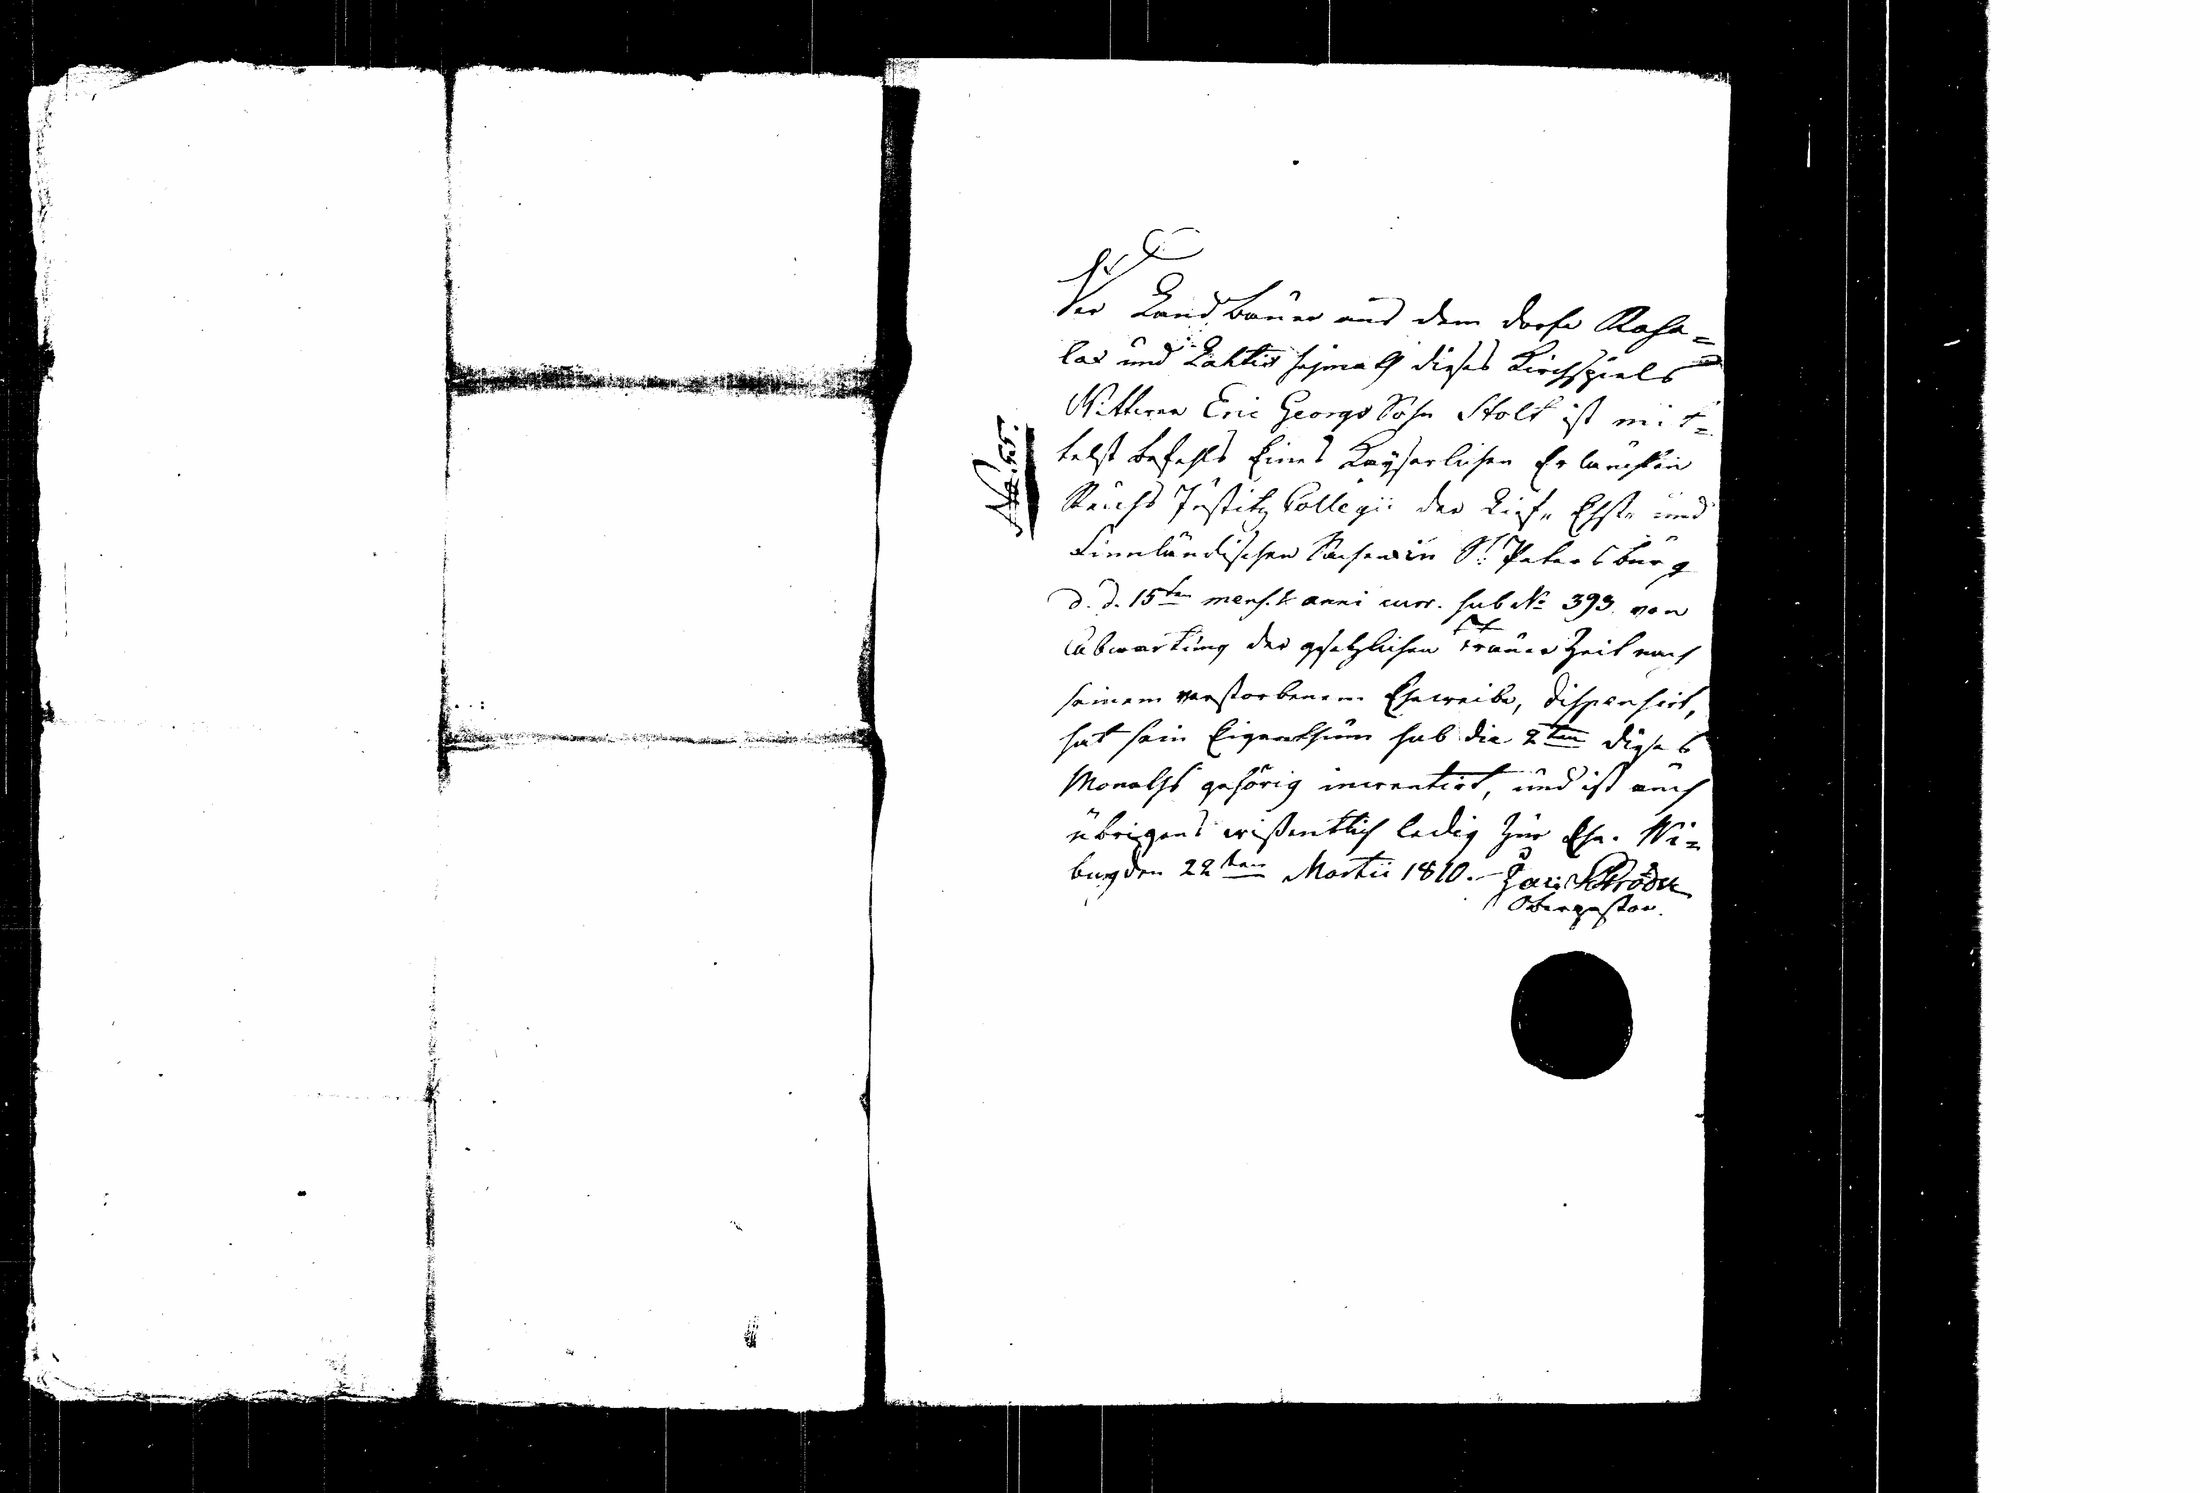 No. 55.
Der Landbauer aus dem Dorfe Rosa=
lax und Lahtis hejmath dieses Kirchspiels
Wittwer Eric Georgs Sohn Stolt ist mit=
telst Befehls Eines Kayserlichen Erlauchten
Reichs Justitz Collegii der Lief- Ehst- und
Finnländischen Sachen in St. Petersburg
d. d. 15ten mens. & anni curr. sub No 393. von
Abwartung der gesetzlichen Trauer Zeit nach
seinem verstorbenem Eheweibe, dispensirt,
hat sein Eigenthum sub die 2ten dieses
Monaths gehörig inventirt, und ist auch
übrigens wißentlich ledig zur Ehe. Wi=
burg den 22ten Martii 1810.
Schröder
Oberpastor.